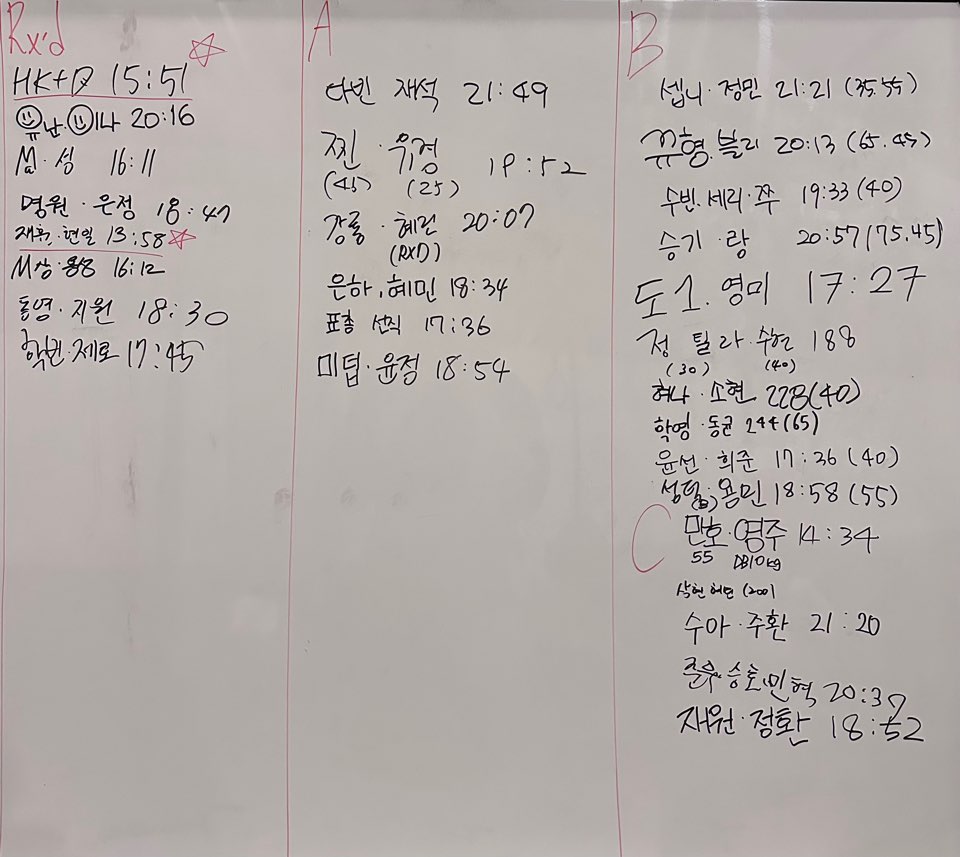 Rx'd
HK+D 15:51
유난·이나 20:16
M·성 16:11
명원·은정 18:47
재훈·현일 13:58
M상·용용 16:12
동영·지원 18:30
학빈·제로 17:45
A
다빈 재석 21:49
찐·우경 19:52
(45) (25)
강룡·혜린 20:07
(RXD)
은하, 혜민 18:34
표총 선직 17:36
미딥·윤정 18:54
B
셉니·정민 21:21 (35.55)
뀨형.블리 20:13 (65.45)
수빈.세리·쭈 19:33 (40)
승기·랑 20:57 (75.45)
도1.영미 17:27
정 틸라·수현 188
(30) (40)
혀나·소현 228(40)
학영·동균 244(65)
윤선·희준 17:36 (40)
성덜·용민 18:58 (55)
C
민호·영주 14:34
55 DB10kg
삭현 혜민 (200)
수아·주환 21:20
준우·승호.민혁 20:37
재원·정환 18:52